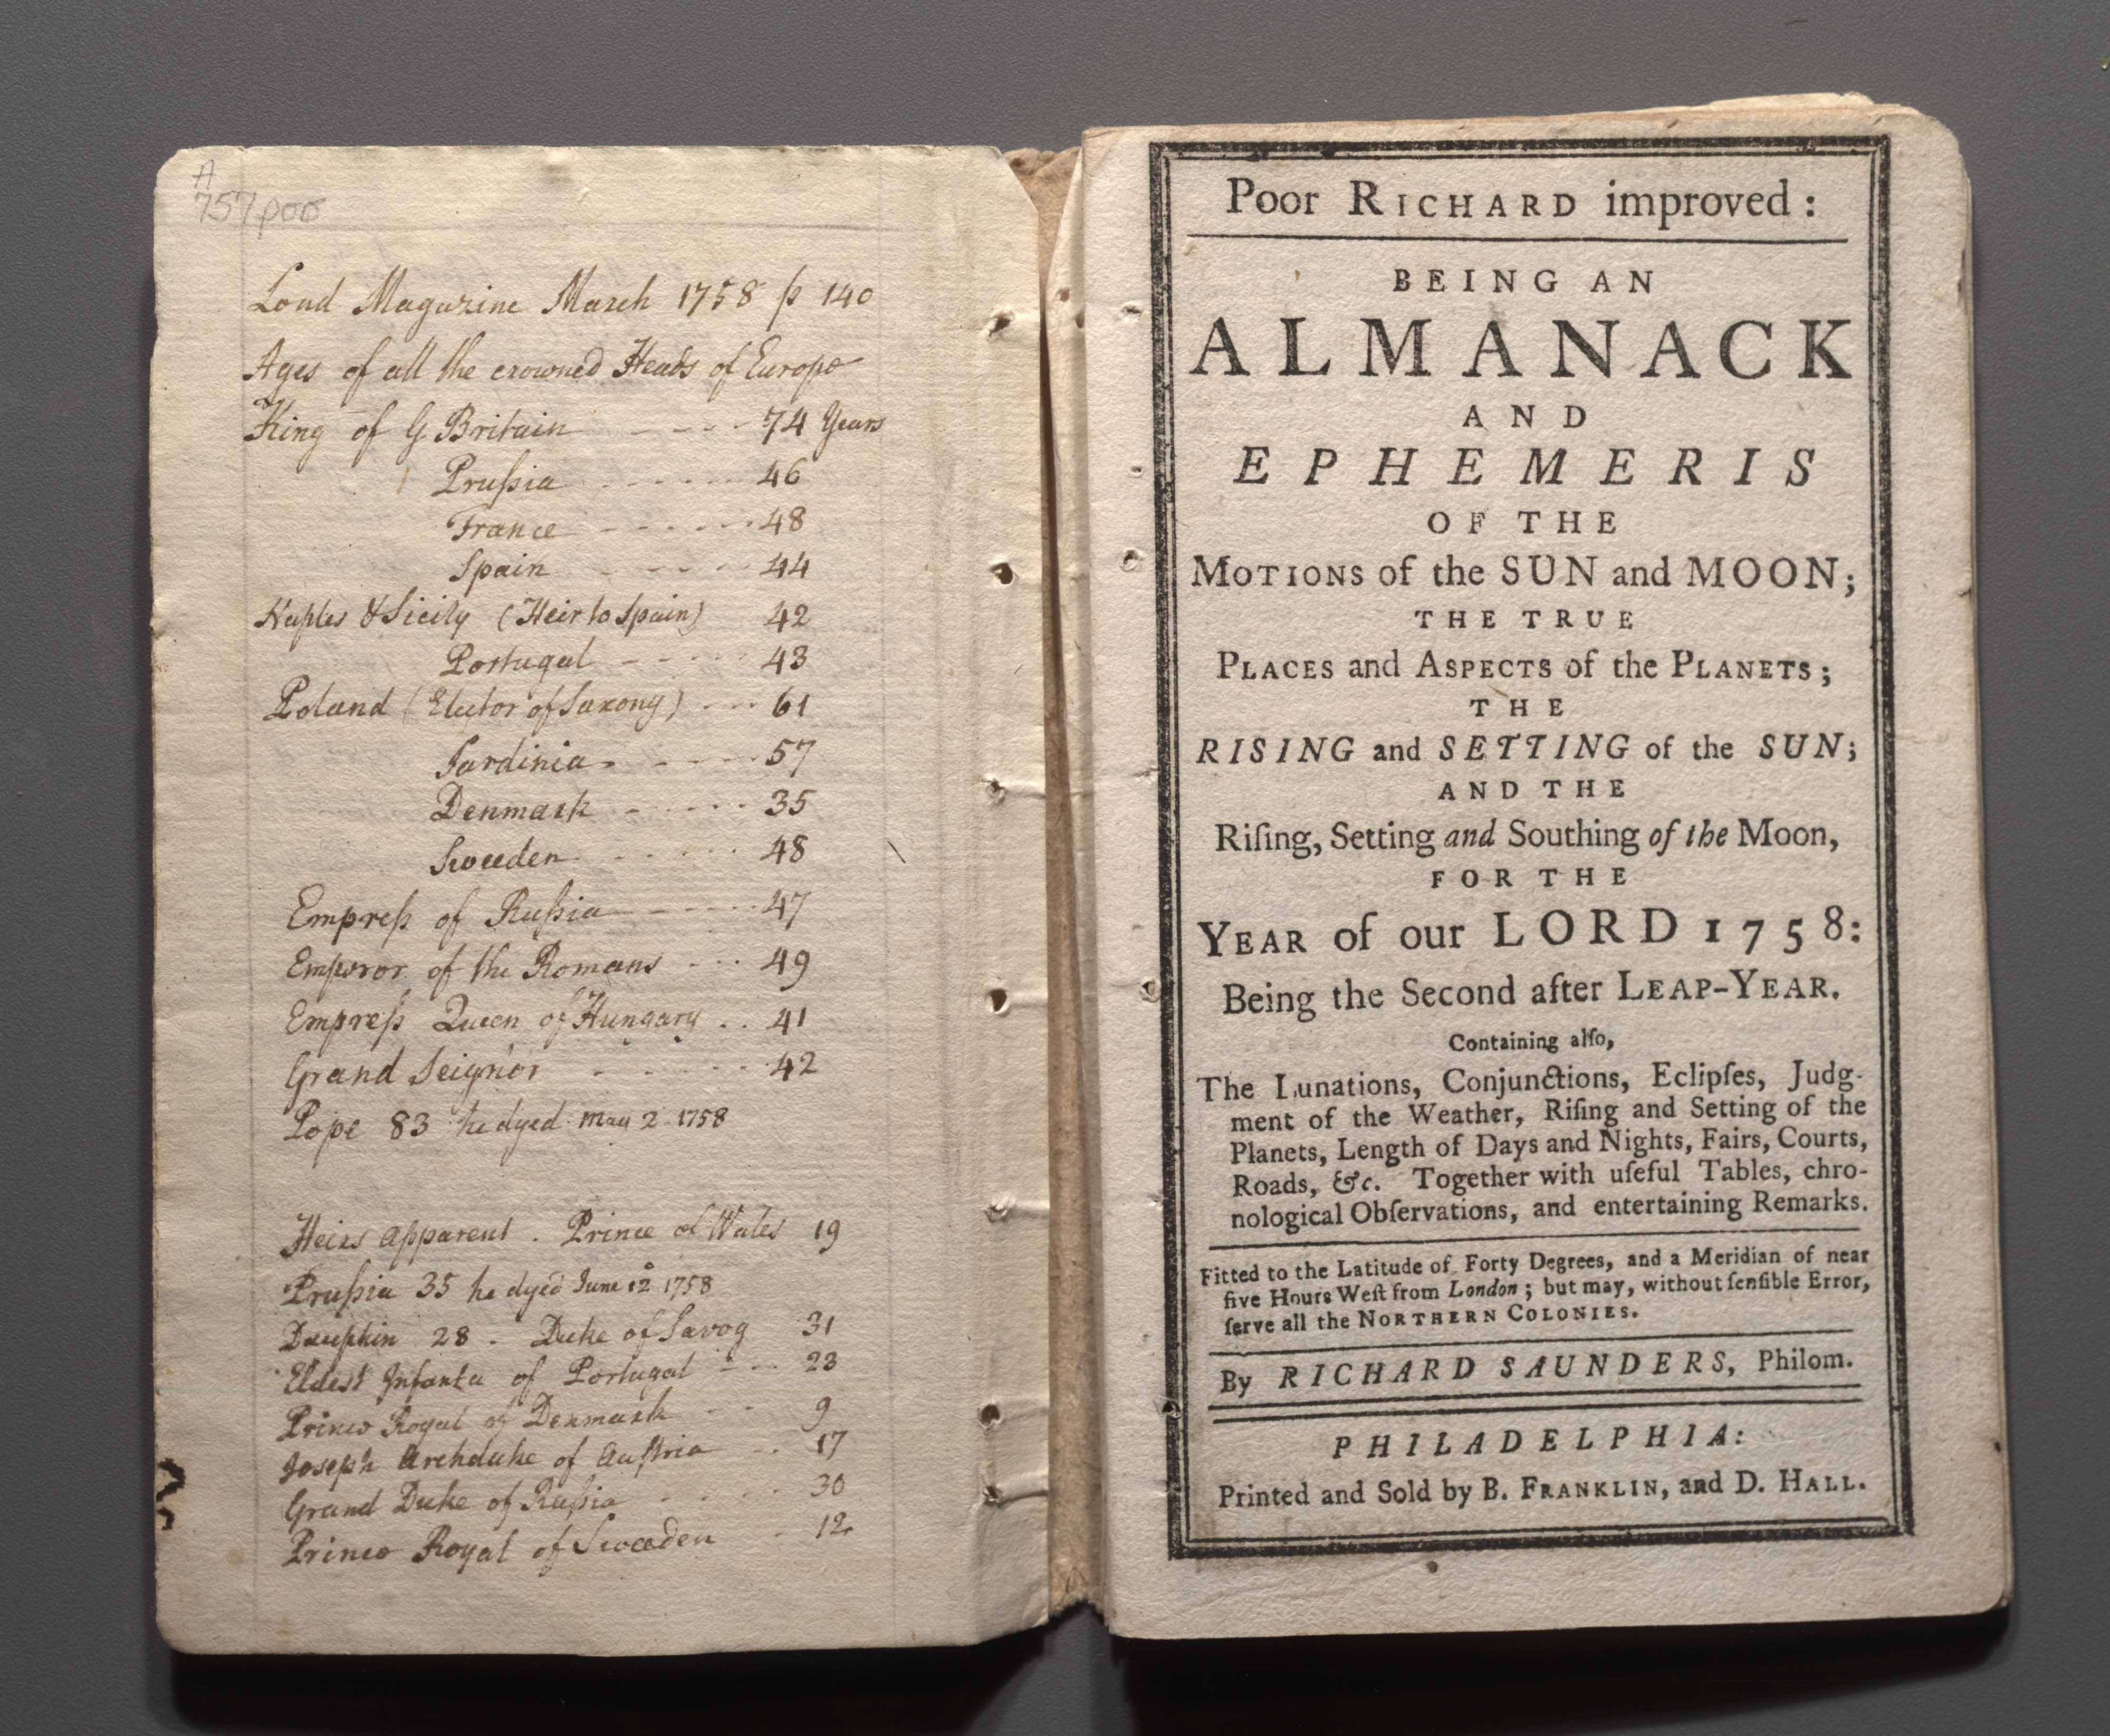 A
757poo
Lond Magazine March 1758 p 140
Ages of all the crowned Heads of Europe
King of G Britain - - - 74 Years
Pruſsia - - - - - - 46
France - - - - - - 48
Spain - - - - - 44
Naples & Sicily (Heir to Spain) 42
Portugal - - - - 43
Poland (Elector of Saxony) - - - 61
Sardinia - - - - - 57
Denmark - - - - - - 35
Sweeden - - - - - 48
Empreſs of Ruſsia - - - - - 47
Emperor of the Romans - - - 49
Empreſs Queen of Hungary . . 41
Grand Seignor - - - - - 42
Pope 83 he dyed May 2 1758
Heirs apparent . Prince of Wales 19
Pruſsia 35 he dyed June 12 1758
Dauphin 28 - Duke of Savoy 31
Eldest Infanta of Portugal - - - 23
Prince Royal of Denmark - - 9
Joseph Archduke of Auſtria - - 17
Grand Duke of Ruſsia - - - - 30
Prince Royal of Sweeden - 12
Poor RICHARD improved:
BEING AN
ALMANACK
AND
EPHEMERIS
OF THE
MOTIONS of the SUN and MOON;
THE TRUE
PLACES and ASPECTS of the PLANETS;
THE
RISING and SETTING of the SUN;
AND THE
Riſing, Setting and Southing of the Moon,
FOR THE
YEAR of our LORD 1758:
Being the Second after LEAP-YEAR.
Containing alſo,
The Lunations, Conjunctions, Eclipſes, Judg-
ment of the Weather, Riſing and Setting of the
Planets, Length of Days and Nights, Fairs, Courts,
Roads, &c. Together with uſeful Tables, chro-
nological Obſervations, and entertaining Remarks.
Fitted to the Latitude of Forty Degrees, and a Meridian of near
five Hours Weſt from London; but may, without ſenſible Error,
ſerve all the NORTHERN COLONIES.
By RICHARD SAUNDERS, Philom.
PHILADELPHIA:
Printed and Sold by B. FRANKLIN, and D. HALL.